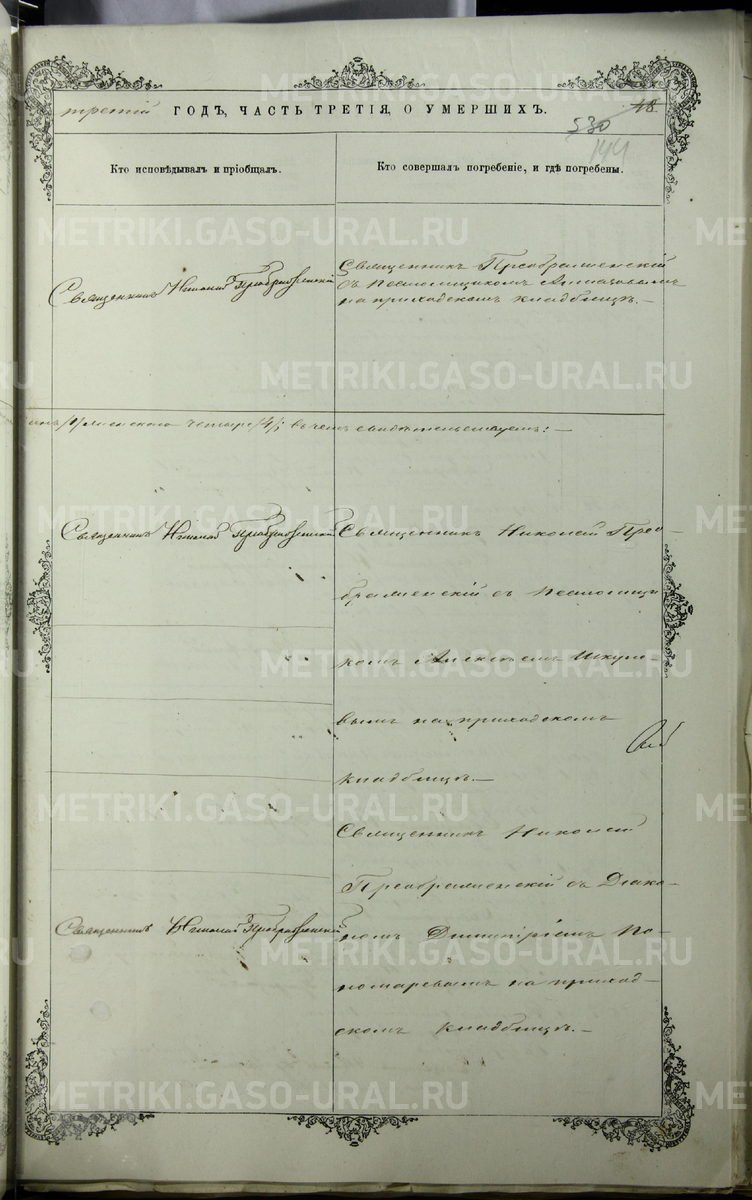 третий ГОДЪ, ЧАСТЬ ТРЕТІЯ, О УМЕРШИХЪ. 48.
530
144
Кто исповѣдывалъ и пріобщалъ.
Кто совершалъ погребеніе, и гдѣ погребены.
Священникъ Николай Преображенскій
Священникъ Преображенскій
съ Псаломщикомъ
на приходскомъ кладбищѣ.—
женскаго четыре /4/; въ чемъ свидѣтельствуемъ: —
Священникъ Николай Преображенскій
Священникъ Николай Прео-
браженскій съ Псаломщи-
комъ Алексѣемъ Шкуле-
вымъ на приходскомъ
кладбищѣ.—
Священникъ Николай
Преображенскій съ Діако-
Священникъ Николай Преображенскій
номъ Димитріемъ По-
номаревымъ на приход-
скомъ кладбищѣ.—
METRIKI.GASO-URAL.RU